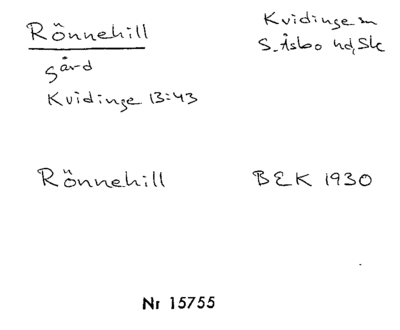 Rönnehill
Kvidinge sn
S. Åsbo hd, Sk
gård
Kvidinge 13:43
Rönnehill BEK 1930
Nr 15755